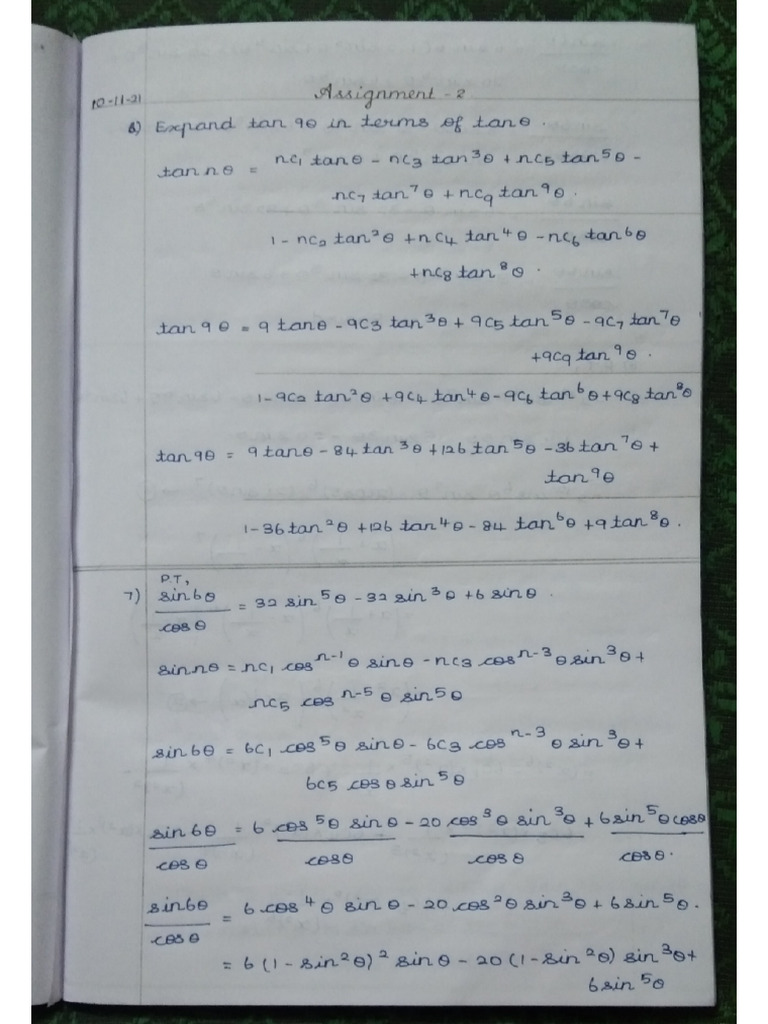 10-11-21
Assignment - 2
8) Expand tan 9θ in terms of tanθ.
tan nθ = nC₁ tanθ - nC₃ tan³θ + nC₅ tan⁵θ -
nC₇ tan⁷θ + nC₉ tan⁹θ.
1 - nC₂ tan²θ + nC₄ tan⁴θ - nC₆ tan⁶θ
+ nC₈ tan⁸θ.
tan 9θ = 9 tanθ - 9C₃ tan³θ + 9C₅ tan⁵θ - 9C₇ tan⁷θ
+ 9C₉ tan⁹θ.
1 - 9C₂ tan²θ + 9C₄ tan⁴θ - 9C₆ tan⁶θ + 9C₈ tan⁸θ
tan 9θ = 9 tanθ - 84 tan³θ + 126 tan⁵θ - 36 tan⁷θ +
tan⁹θ
1 - 36 tan²θ + 126 tan⁴θ - 84 tan⁶θ + 9 tan⁸θ.
P.T,
7) sin6θ/cosθ = 32 sin⁵θ - 32 sin³θ + 6 sinθ.
sin nθ = nC₁ cosⁿ⁻¹θ sinθ - nC₃ cosⁿ⁻³θ sin³θ +
nC₅ cosⁿ⁻⁵θ sin⁵θ
sin6θ = 6C₁ cos⁵θ sinθ - 6C₃ cosⁿ⁻³θ sin³θ +
6C₅ cosθ sin⁵θ
sin6θ/cosθ = 6 cos⁵θ sinθ/cosθ - 20 cos³θ sin³θ/cosθ + 6 sin⁵θ cosθ/cosθ.
sin6θ/cosθ = 6 cos⁴θ sinθ - 20 cos²θ sin³θ + 6 sin⁵θ.
= 6 (1 - sin²θ)² sinθ - 20 (1 - sin²θ) sin³θ +
6 sin⁵θ